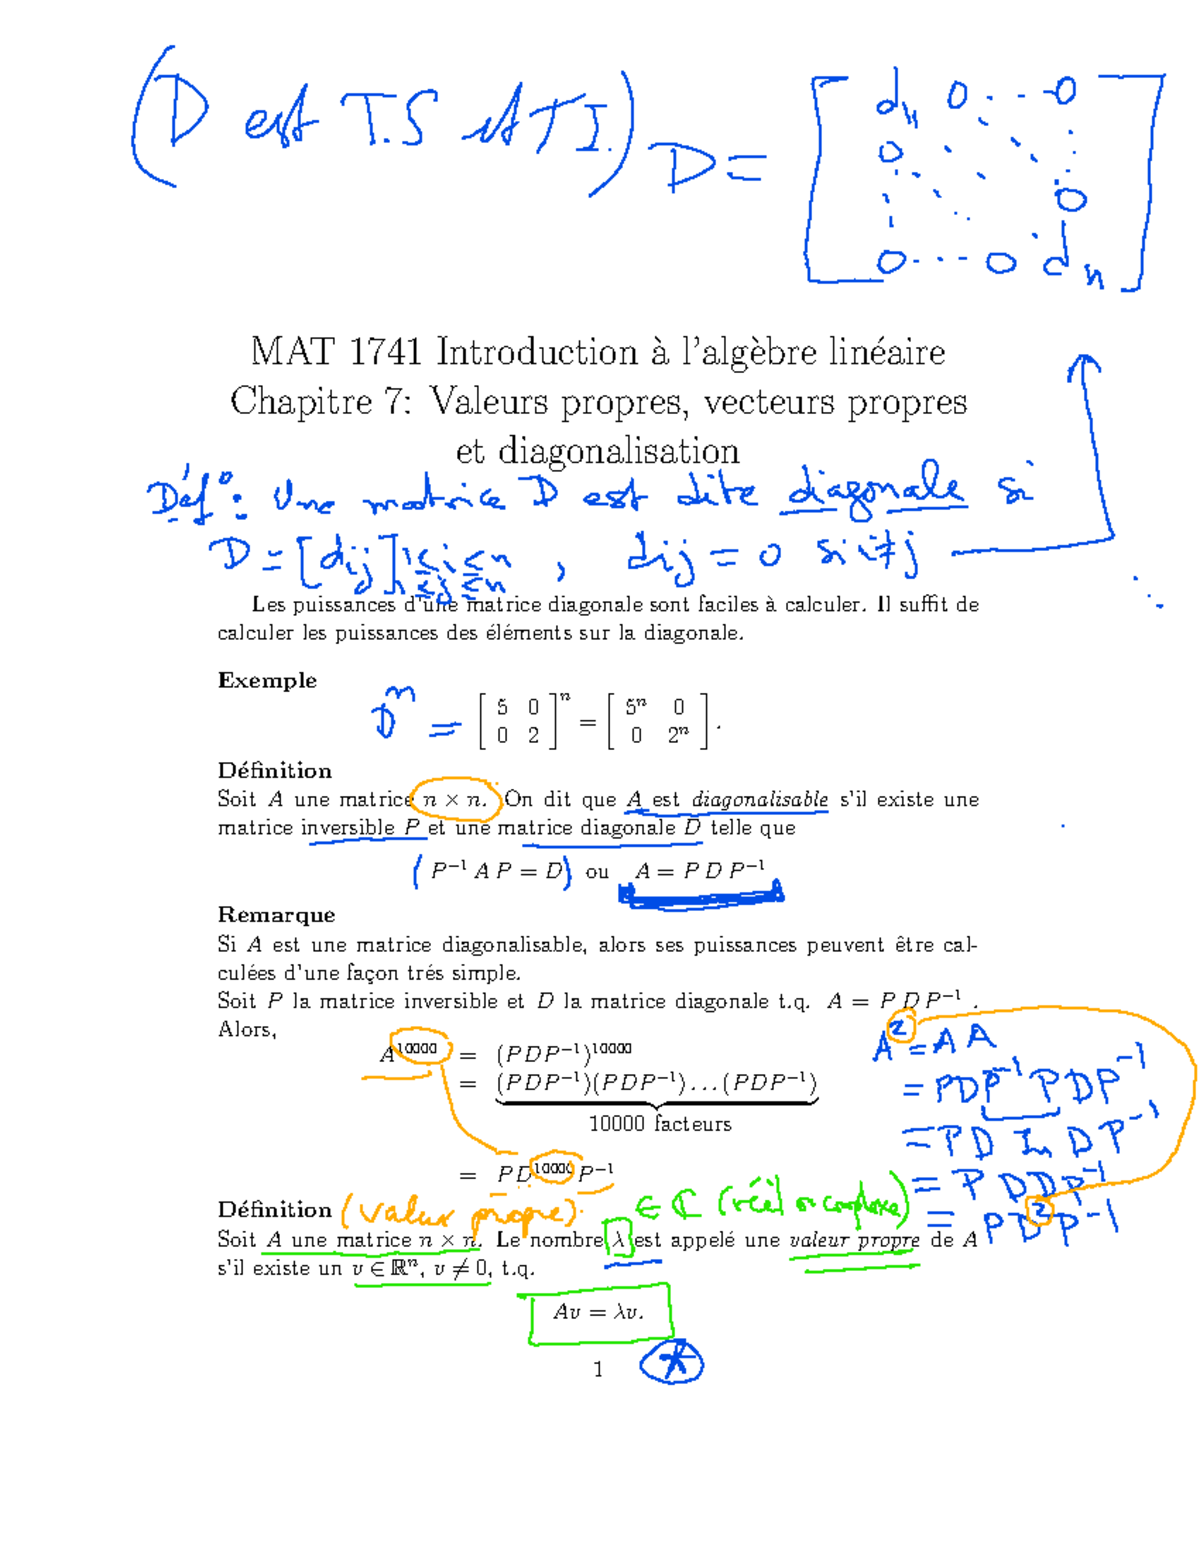 (D est T.S et T I.) D = [ d₁₁ 0 . . . 0
0 . . . .
. . . . 0
0 . . . 0 dₙ ]
MAT 1741 Introduction à l'algèbre linéaire
Chapitre 7: Valeurs propres, vecteurs propres
et diagonalisation
Déf°: Une matrice D est dite diagonale si
D = [dij] 1≤i≤n , dij = 0 si i≠j
1≤j≤n
Les puissances d'une matrice diagonale sont faciles à calculer. Il suffit de
calculer les puissances des éléments sur la diagonale.
Exemple
Dⁿ = [ 5 0 ; 0 2 ]ⁿ = [ 5ⁿ 0 ; 0 2ⁿ ].
Définition
Soit A une matrice n × n. On dit que A est diagonalisable s'il existe une
matrice inversible P et une matrice diagonale D telle que
( P⁻¹ A P = D ) ou A = P D P⁻¹
Remarque
Si A est une matrice diagonalisable, alors ses puissances peuvent être cal-
culées d'une façon trés simple.
Soit P la matrice inversible et D la matrice diagonale t.q. A = P D P⁻¹ .
Alors,
A¹⁰⁰⁰⁰ = (PDP⁻¹)¹⁰⁰⁰⁰
= (PDP⁻¹)(PDP⁻¹)...(PDP⁻¹)
10000 facteurs
= P D¹⁰⁰⁰⁰ P⁻¹
A² = A A
= PDP⁻¹ PDP⁻¹
= PD In DP⁻¹
= P DDP⁻¹
= PD²P⁻¹
Définition (valeur propre). ∈ ℂ (réel or complexe)
Soit A une matrice n × n. Le nombre λ est appelé une valeur propre de A
s'il existe un v ∈ ℝⁿ, v ≠ 0, t.q.
Av = λv.
1 *